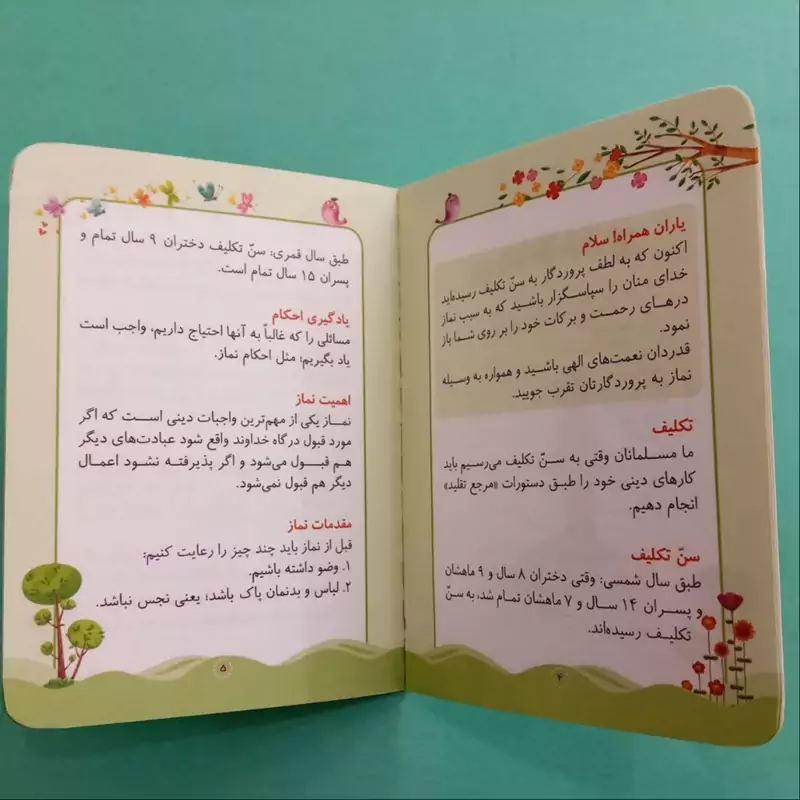 یاران همراه! سلام
اکنون که به لطف پروردگار به سنّ تکلیف رسیده‌اید
خدای منان را سپاسگزار باشید که به سبب نماز
درهای رحمت و برکات خود را بر روی شما باز
نمود.
قدردان نعمت‌های الهی باشید و همواره به وسیله
نماز به پروردگارتان تقرب جویید.
تکلیف
ما مسلمانان وقتی به سنّ تکلیف می‌رسیم باید
کارهای دینی خود را طبق دستورات «مرجع تقلید»
انجام دهیم.
سنّ تکلیف
طبق سال شمسی: وقتی دختران ۸ سال و ۹ ماهشان
و پسران ۱۴ سال و ۷ ماهشان تمام شد، به سنّ
تکلیف رسیده‌اند.
۴
طبق سال قمری: سنّ تکلیف دختران ۹ سال تمام و
پسران ۱۵ سال تمام است.
یادگیری احکام
مسائلی را که غالباً به آنها احتیاج داریم، واجب است
یاد بگیریم؛ مثل احکام نماز.
اهمیت نماز
نماز یکی از مهم‌ترین واجبات دینی است که اگر
مورد قبول درگاه خداوند واقع شود عبادت‌های دیگر
هم قبول می‌شود و اگر پذیرفته نشود اعمال
دیگر هم قبول نمی‌شود.
مقدمات نماز
قبل از نماز باید چند چیز را رعایت کنیم:
۱. وضو داشته باشیم.
۲. لباس و بدنمان پاک باشد؛ یعنی نجس نباشد.
۵